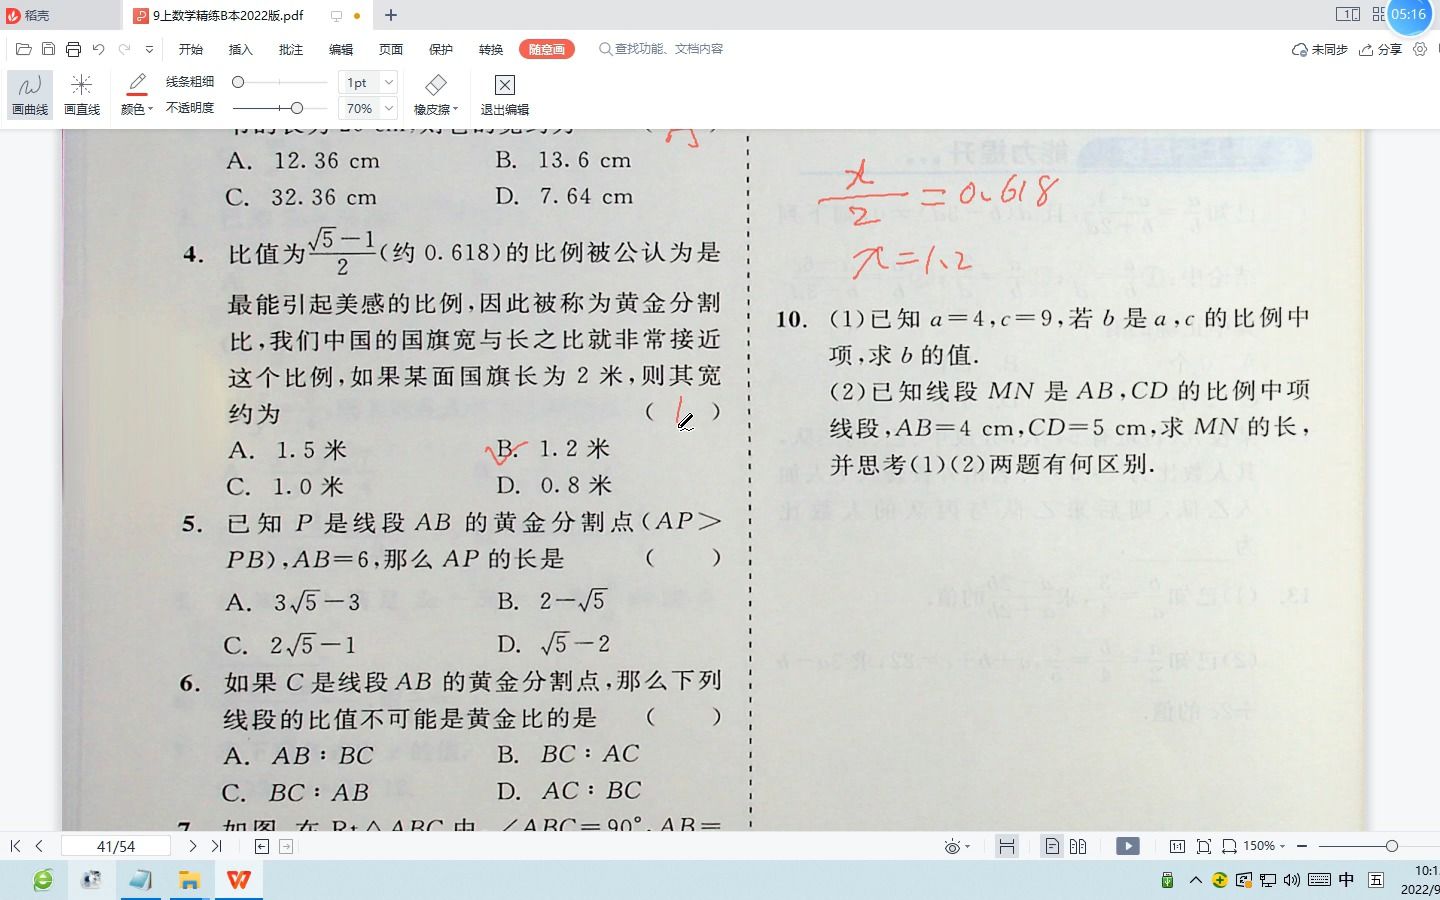 稻壳
9上数学精练B本2022版.pdf
05:16
开始 插入 批注 编辑 页面 保护 转换 随意画 查找功能、文档内容
未同步 分享
画曲线 画直线 颜色 线条粗细 1pt
不透明度 70% 橡皮擦 退出编辑
A. 12.36 cm B. 13.6 cm
C. 32.36 cm D. 7.64 cm
4. 比值为(√5−1)/2(约 0.618)的比例被公认为是
最能引起美感的比例,因此被称为黄金分割
比,我们中国的国旗宽与长之比就非常接近
这个比例,如果某面国旗长为 2 米,则其宽
约为 ( )
A. 1.5 米 B. 1.2 米
C. 1.0 米 D. 0.8 米
5. 已知 P 是线段 AB 的黄金分割点(AP>
PB),AB=6,那么 AP 的长是 ( )
A. 3√5−3 B. 2−√5
C. 2√5−1 D. √5−2
6. 如果 C 是线段 AB 的黄金分割点,那么下列
线段的比值不可能是黄金比的是 ( )
A. AB∶BC B. BC∶AC
C. BC∶AB D. AC∶BC
7. 如图,在 Rt△ABC 中,∠ABC=90°,AB=
x/2=0.618
x=1.2
10. (1)已知 a=4,c=9,若 b 是 a,c 的比例中
项,求 b 的值.
(2)已知线段 MN 是 AB,CD 的比例中项
线段,AB=4 cm,CD=5 cm,求 MN 的长,
并思考(1)(2)两题有何区别.
41/54
150%
中 五
10:1
2022/9